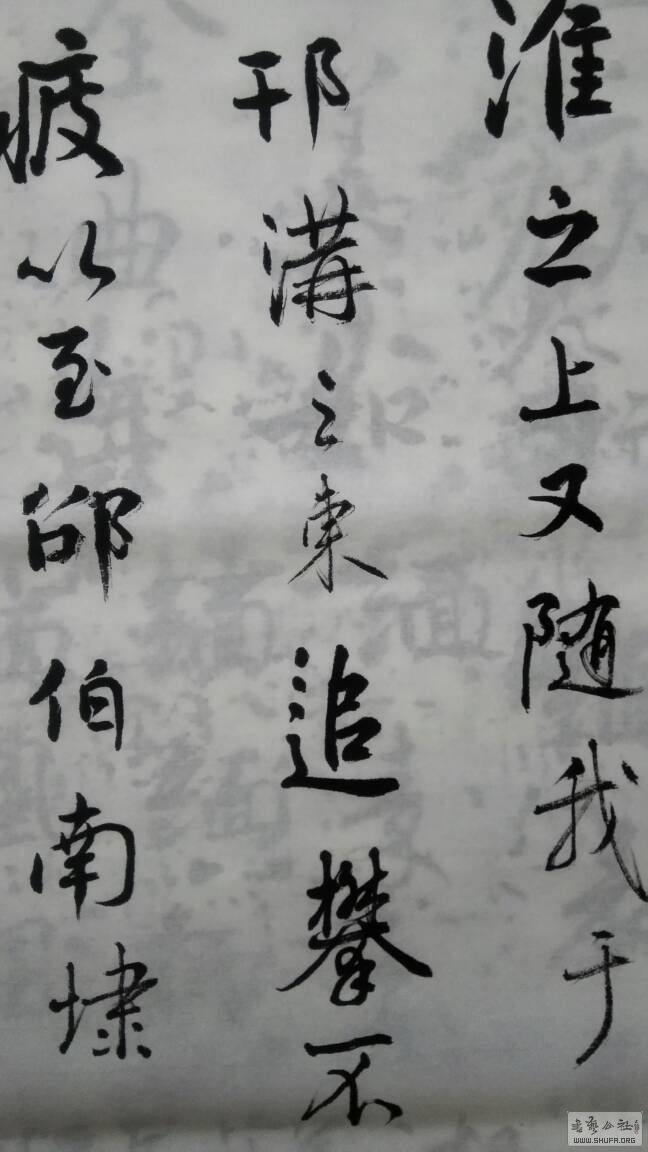 淮之上又随我于
邗溝之東追攀不
疲以至邵伯南埭
书艺公社
WWW.SHUFA.ORG